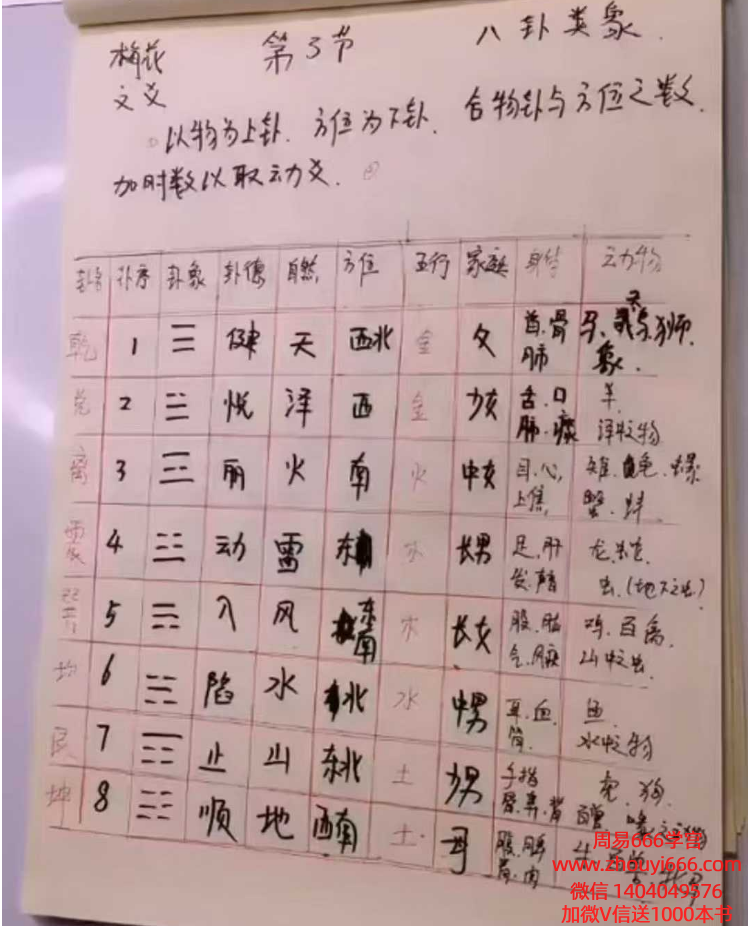 梅花 第3节 八卦类象.
文爻
以物为上卦、方位为下卦、合物卦与方位之数、
加时数以取动爻.
卦名 卦序 卦象 卦德 自然 方位 五行 家庭 身体 动物
乾 1 ☰ 健 天 西北 金 父 首、骨 马、天 狮
肺 象.
兑 2 ☱ 悦 泽 西 金 少女 舌、口 羊
肺、痰 泽中之物
离 3 ☲ 丽 火 南 火 中女 目、心, 雉、龟
上焦, 蟹、蚌
震 4 ☳ 动 雷 东 木 长男 足、肝 龙、蛇
发、声音 虫、(地下之虫)
巽 5 ☴ 入 风 东南 木 长女 股、肱 鸡、百禽
气、 山中虫
坎 6 陷 水 北 水 中男 耳、血 鱼
肾 水中之物
艮 7 ☶ 止 山 东北 土 少男 手指 虎、狗
骨、鼻、背
坤 8 ☷ 顺 地 西南 土 母 腹、脾 牛
胃、肉
周易666学宫
www.zhouyi666.com
微信 1404049576
加微V信送1000本书